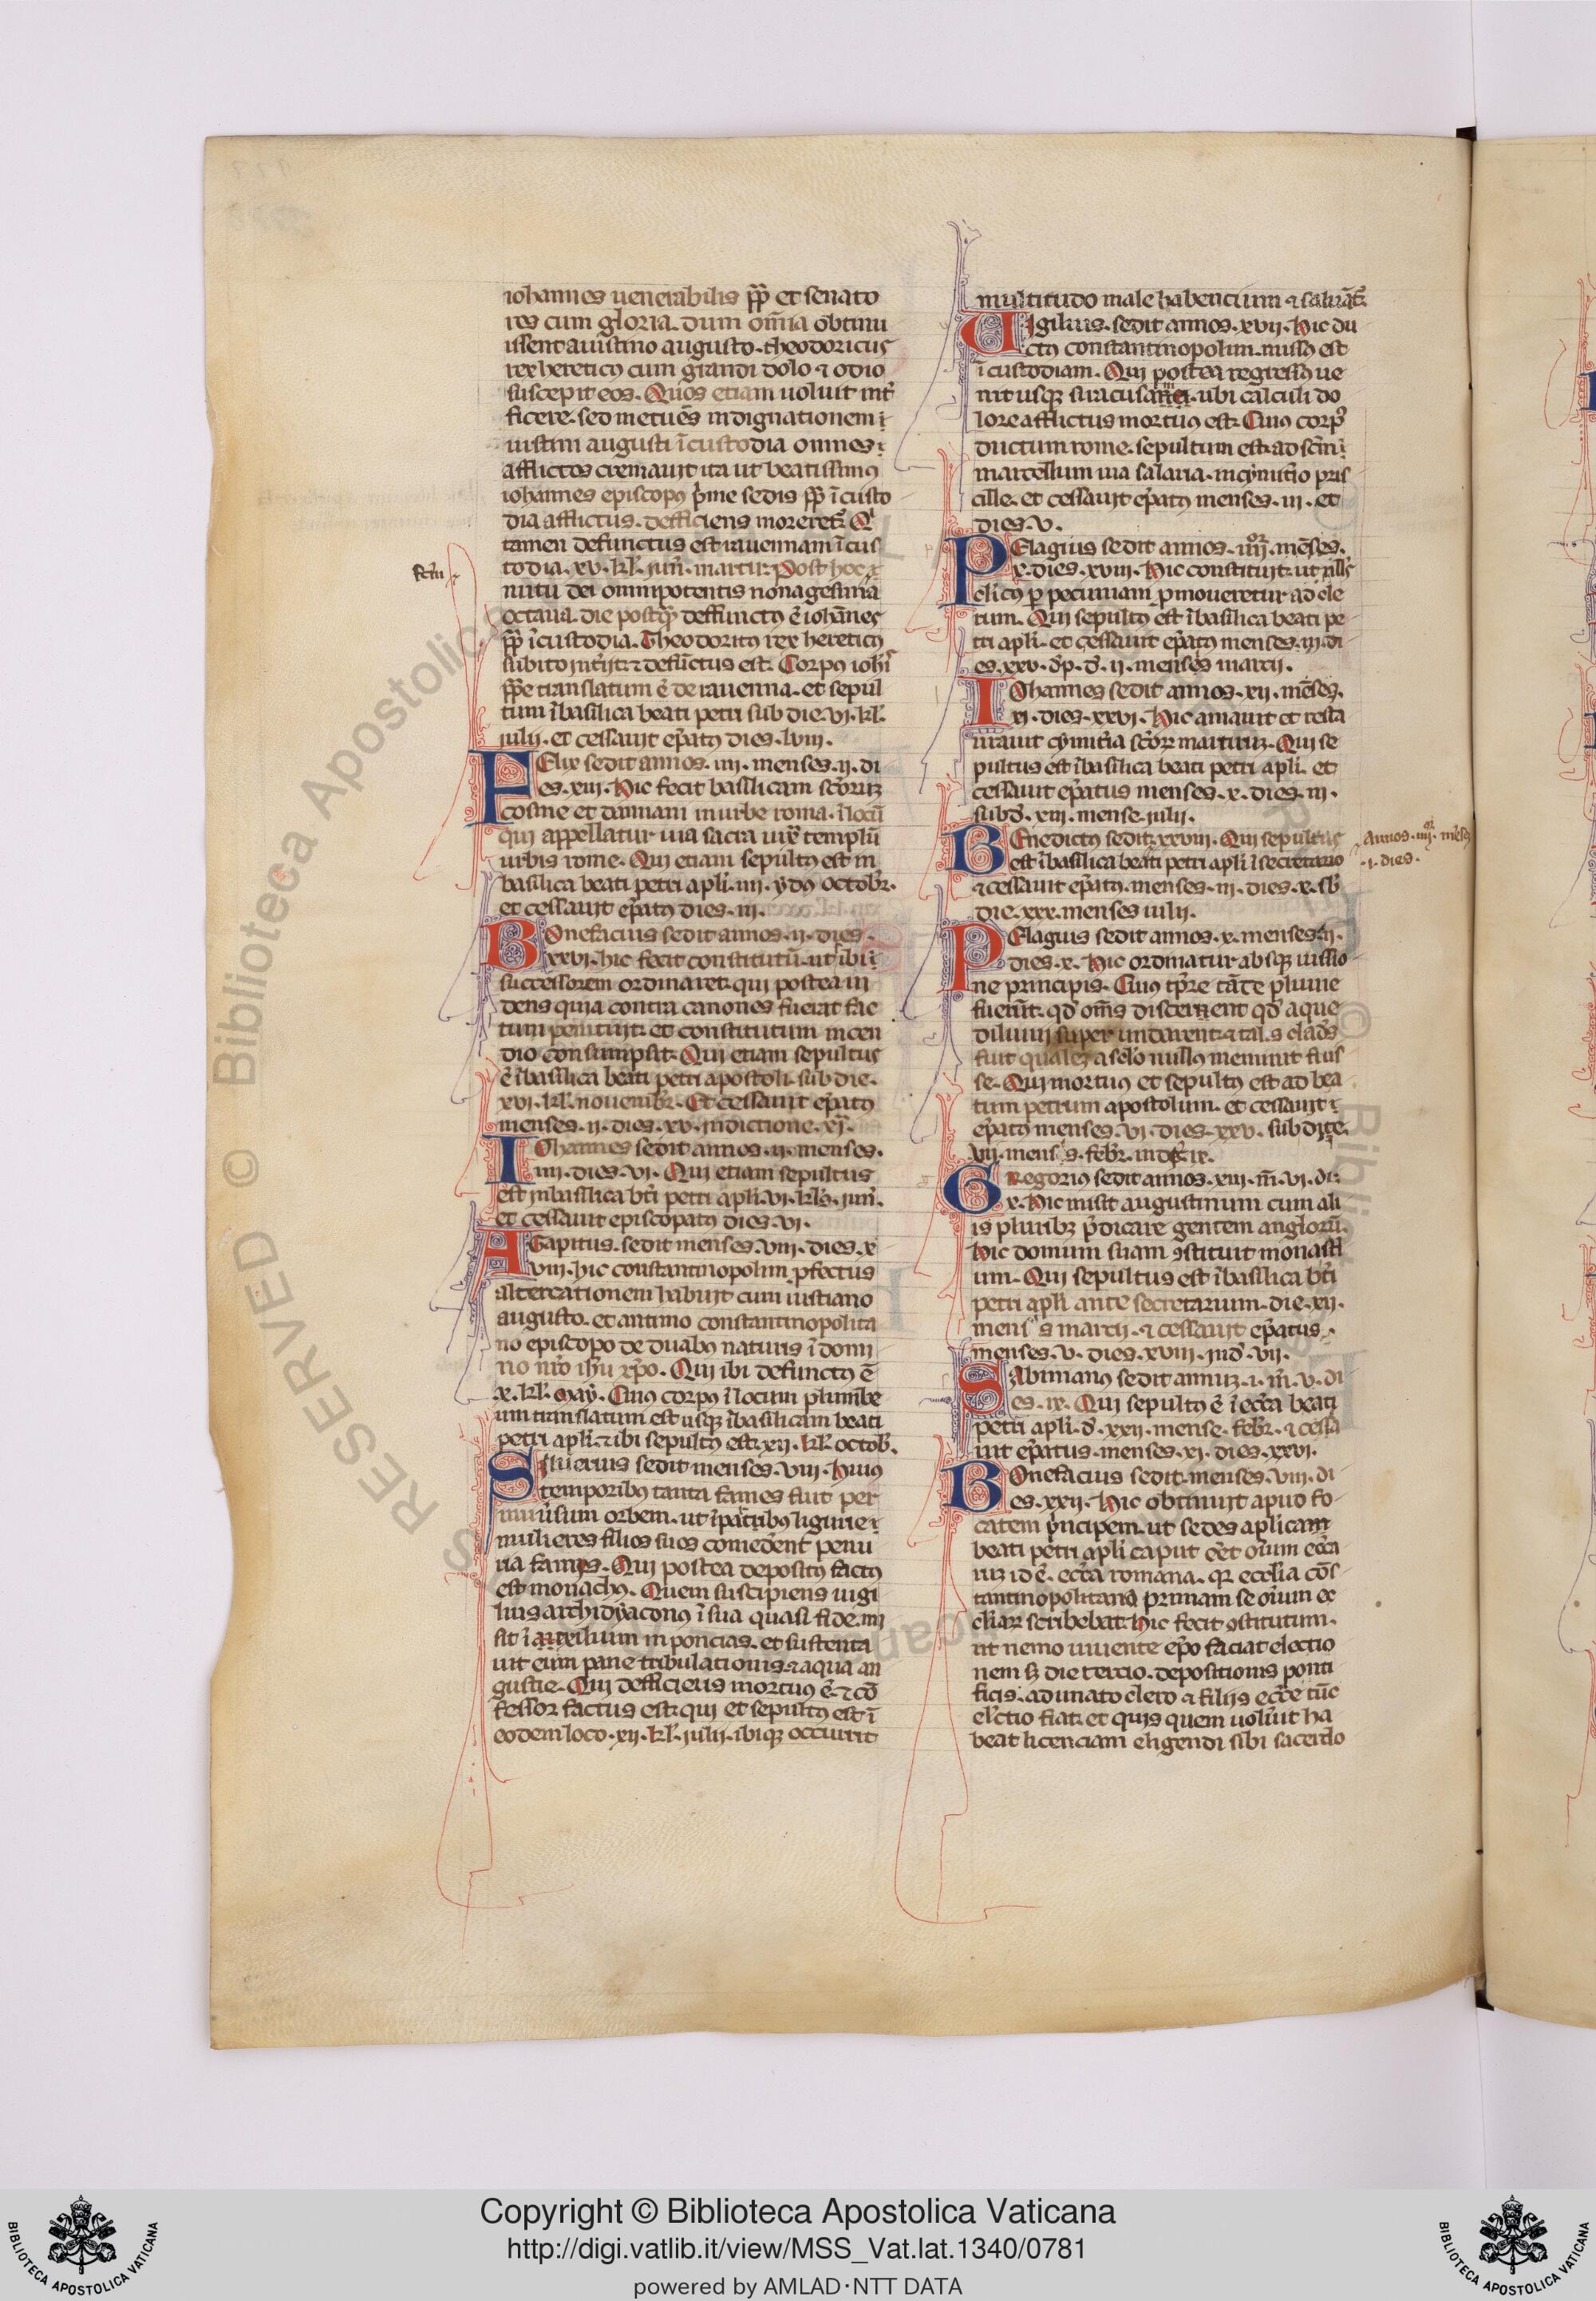 iohannes uenerabilis pp̄ et senato
res cum gloria. dum om̄ia obtinu
issent a iustino augusto. theodoricus
rex hereticꝰ cum grandi dolo ⁊ odio
suscepit eos. Quos etiam uoluit int̾
ficere. sed metuēs indignationem i
iustini augusti ī custodia omnes
afflictos cremauit ita ut beatissimꝰ
iohannes episcopꝰ p̾me sedis pp̄ ī custo
dia afflictus. defficiens moreret̾. Qͥ
tamen defunctus est rauennam ī cus
todia. xv. kl̾. iun̾. martir. Post hoc
fc̄m
nutu dei omnipotentis nonagesima
octaua die postq̄ deffunctꝰ ē iohānes
pp̄ ī custodia. Theodoricꝰ rex hereticꝰ
subito int̾ijt ⁊ defūctus est. Corpꝰ ioh̾is
pp̄e translatum ē de rauenna. et sepul
tum ī basilica beati petri sub die. vi. kl̾.
iulij. et cessauit ep̄atꝰ dies. lviii.
FElix sedit annos. iiii. menses. ii. di
es. xiii. Hic fecit basilicam sc̄oꝝ
cosme et damiani in urbe roma. ī locū
qui appellatur uia sacra iux̾ templū
urbis rome. Qui etiam sepultꝰ est in
basilica beati petri apl̾i. iiii. ydꝰ octobr̾.
et cessauit ep̄atꝰ dies. iii.
BOnefacius sedit annos. ii. dies.
xxvi. hic fecit constitutū. ut ibi
successorem ordinaret. qui postea ui
dens quia contra canones fuerat fac
tum penituit. et constitutum incen
dio consumpsit. Qui etiam sepultus
ē ī basilica beati petri apostoli. sub die.
xvi. kl̾. nouembr̾. Et cessauit ep̄atꝰ
menses. ii. dies. xv. indictione. xi.
IOhannes sedit annos. ii. menses.
iiii. dies. vi. Qui etiam sepultus
est in basilica bt̄i petri apl̾i. vi. kl̾s. iun̾.
et cessauit episcopatꝰ dies. vi.
AGapitus. sedit menses. viii. dies. x
viii. hic constantinopolim ꝓfectus
altercationem habuit cum iustiano
augusto. et antimo constantinopolita
no episcopo de duabꝰ naturis ī domi
no nr̄o ih̄u xp̄o. Qui ibi defunctꝰ ē
x. kl̾. may. Cuiꝰ corpꝰ ī locum plumbe
um translatum est usqꝫ ī basilicam beati
petri apl̾i. ⁊ ibi sepultꝰ est. xii. kl̾. octob̾.
SIluerius sedit menses. viii. Huiꝰ
temporibꝰ tanta fames fuit per
uniu̾sum orbem. ut ī partibꝰ ligurie
mulieres filios suos comeder̄ent penu
ria famis. Qui postea depositꝰ factꝰ
est monachꝰ. Quem suscipiens uigi
lius archidyaconꝰ ī sua quasi fide. mi
sit ī auxilium in poncias. et sustenta
uit eum pane tribulationis. ⁊ aqua an
gustie. Qui defficiens mortuꝰ ē. ⁊ cō
fessor factus est. qui et sepultꝰ est ī
eodem loco. xii. kl̾. iulii. ibiqꝫ occurrit
multitudo male habencium ⁊ saluāt̾.
UIgilius. sedit annos. xvii. Hic du
ctꝰ constantinopolim. missꝰ est
ī custodiam. Qui postea regressꝰ ue
nit usqꝫ siracusam. ubi calculi do
lore afflictus mortuꝰ est. Cuiꝰ corpꝰ
ductum rome. sepultum est. ad sc̄m
marcellum uia salaria. in cymit̾io pris
cille. et cessauit ep̄atꝰ menses. iii. et
dies. v.
PElagius sedit annos. iiii. mēses.
x. dies. xviii. Hic constituit. ut null̾s
cl̾icꝰ ꝑ pecuniam ꝓmoueretur ad cle
rum. Qui sepultꝰ est ī basilica beati pe
tri apl̾i. et cessauit ep̄atꝰ menses. iii. di
es. xxv. dp̾. d̾. ii. menses marcii.
IOhannes sedit annos. xii. mēses.
xi. dies. xxvi. Hic amauit et resta
urauit cymit̾ia sc̄oꝝ martirū. Qui se
pultus est ī basilica beati petri apl̾i. et
cessauit ep̄atus menses. x. dies. iii.
sub d̾. xiii. mense. iulii.
BEnedictꝰ sedit. xxviii. Qui sepultus
annos. iiii. mēses
est ī basilica beati petri apl̾i ī secretario
.i. dies.
⁊ cessauit ep̄atꝰ. menses. iii. dies. x. sb̾
die. xxx. menses iulii.
PElagius sedit annos. x. menses. ii.
dies. x. Hic ordinatur absqꝫ iussio
ne principis. Cuiꝰ tp̄re tāte pluuie
fuerūt. qd̾ om̄s discernent qd̾ aque
diluuij super undarent. ⁊ talis clades
fuit qualez a sc̄lo nullꝰ meminit fuis
se. Qui mortuꝰ et sepultꝰ est ad bea
tum petrum apostolum. et cessauit
ep̄atꝰ menses. vi. dies. xxv. sub dije.
vii. mensis. febr̾. indc̄. ix.
GRegoriꝰ sedit annos. xiii. m̄. vi. di.
x. Hic misit augustinum cum ali
is pluribꝫ p̄dicare gentem anglorū.
Hic domum suam ꝯstituit monast̾i
um. Qui sepultus est ī basilica bt̄i
petri apl̾i ante secretarium. die. xii.
mensis marcii. ⁊ cessauit ep̄atus.
menses. v. dies. xviii. ind̾. vii.
SAbinianꝰ sedit annuꝫ. i. m̄. v. di
es. ix. Qui sepultꝰ ē ī ecc̄a beati
petri apl̾i. d̾. xxii. mense. febr̾. ⁊ cessa
uit ep̄atus. menses. xi. dies. xxvi.
BOnefacius sedit. menses. viii. di
es. xxii. Hic obtinuit apud fo
catem p̾ncipem. ut sedes aplicam
beati petri apl̾i caput eēt om̄ium ecc̄a
ruꝫ id ē. ecc̄a romana. qꝛ eccl̾ia cōs
tantinopolitana primam se om̄ium ec
cl̾iaꝝ scribebat. Hic fecit ꝯstitutum.
ut nemo uiuente ep̄o faciat electio
nem sꝫ die tercio. depositionis ponti
ficis. adunato clero ⁊ filijs ecc̄e tūc
el̾ctio fiat. et quis quem uolu̾it ha
beat licenciam eligendi sibi sacerdo
Copyright © Biblioteca Apostolica Vaticana
http://digi.vatlib.it/view/MSS_Vat.lat.1340/0781
powered by AMLAD·NTT DATA
BIBLIOTECA APOSTOLICA VATICANA
BIBLIOTECA APOSTOLICA VATICANA